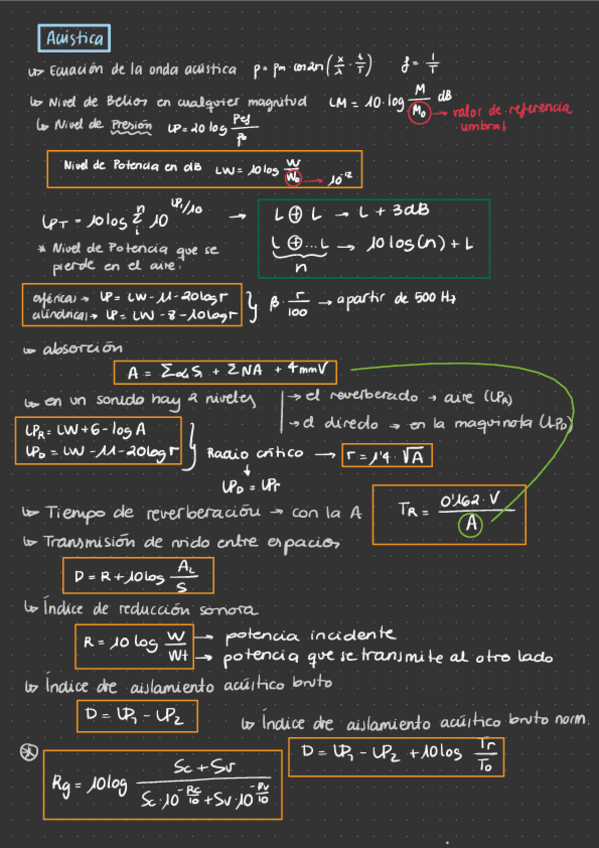 Acústica
↳ Ecuación de la onda acústica p = pm · cos 2π (x/λ · t/T) f = 1/T
↳ Nivel de Belios en cualquier magnitud LM = 10·log M/M₀ dB → valor de referencia
umbral
↳ Nivel de Presión LP = 20 log Pef/P₀
Nivel de Potencia en dB LW = 10 log W/W₀ → 10⁻¹²
LPT = 10 log Σ 10^(LPi/10) → L ⊕ L → L + 3dB
* Nivel de Potencia que se
pierde en el aire:
L ⊕...L → 10 log(n) + L
n
esféricas → LP = LW - 11 - 20 log r
cilíndricas → LP = LW - 8 - 10 log r
β · r/100 → apartir de 500 Hz
↳ absorción
A = ΣαiSi + ΣNA + 4mmV
↳ en un sonido hay 2 niveles
→ el reverberado → aire (LPR)
→ el directo → en la maquinota (LPD)
LPR = LW + 6 - log A
LPD = LW - 11 - 20 log r
Radio crítico → r = 1'4 · √A
↓
LPD = LPr
↳ Tiempo de reverberación → con la A TR = 0'162·V/A
↳ Transmisión de ruido entre espacios
D = R + 10 log AL/S
↳ Índice de reducción sonora
R = 10 log W/Wt → potencia incidente
→ potencia que se transmite al otro lado
↳ Índice dre aislamiento acústico bruto
D = LP₁ - LP₂
↳ Índice dre aislamiento acústico bruto norm.
D = LP₁ - LP₂ + 10 log Tr/T₀
* Rg = 10 log (Sc + Sv)/(Sc·10^(-Rc/10) + Sv·10^(-Rv/10))